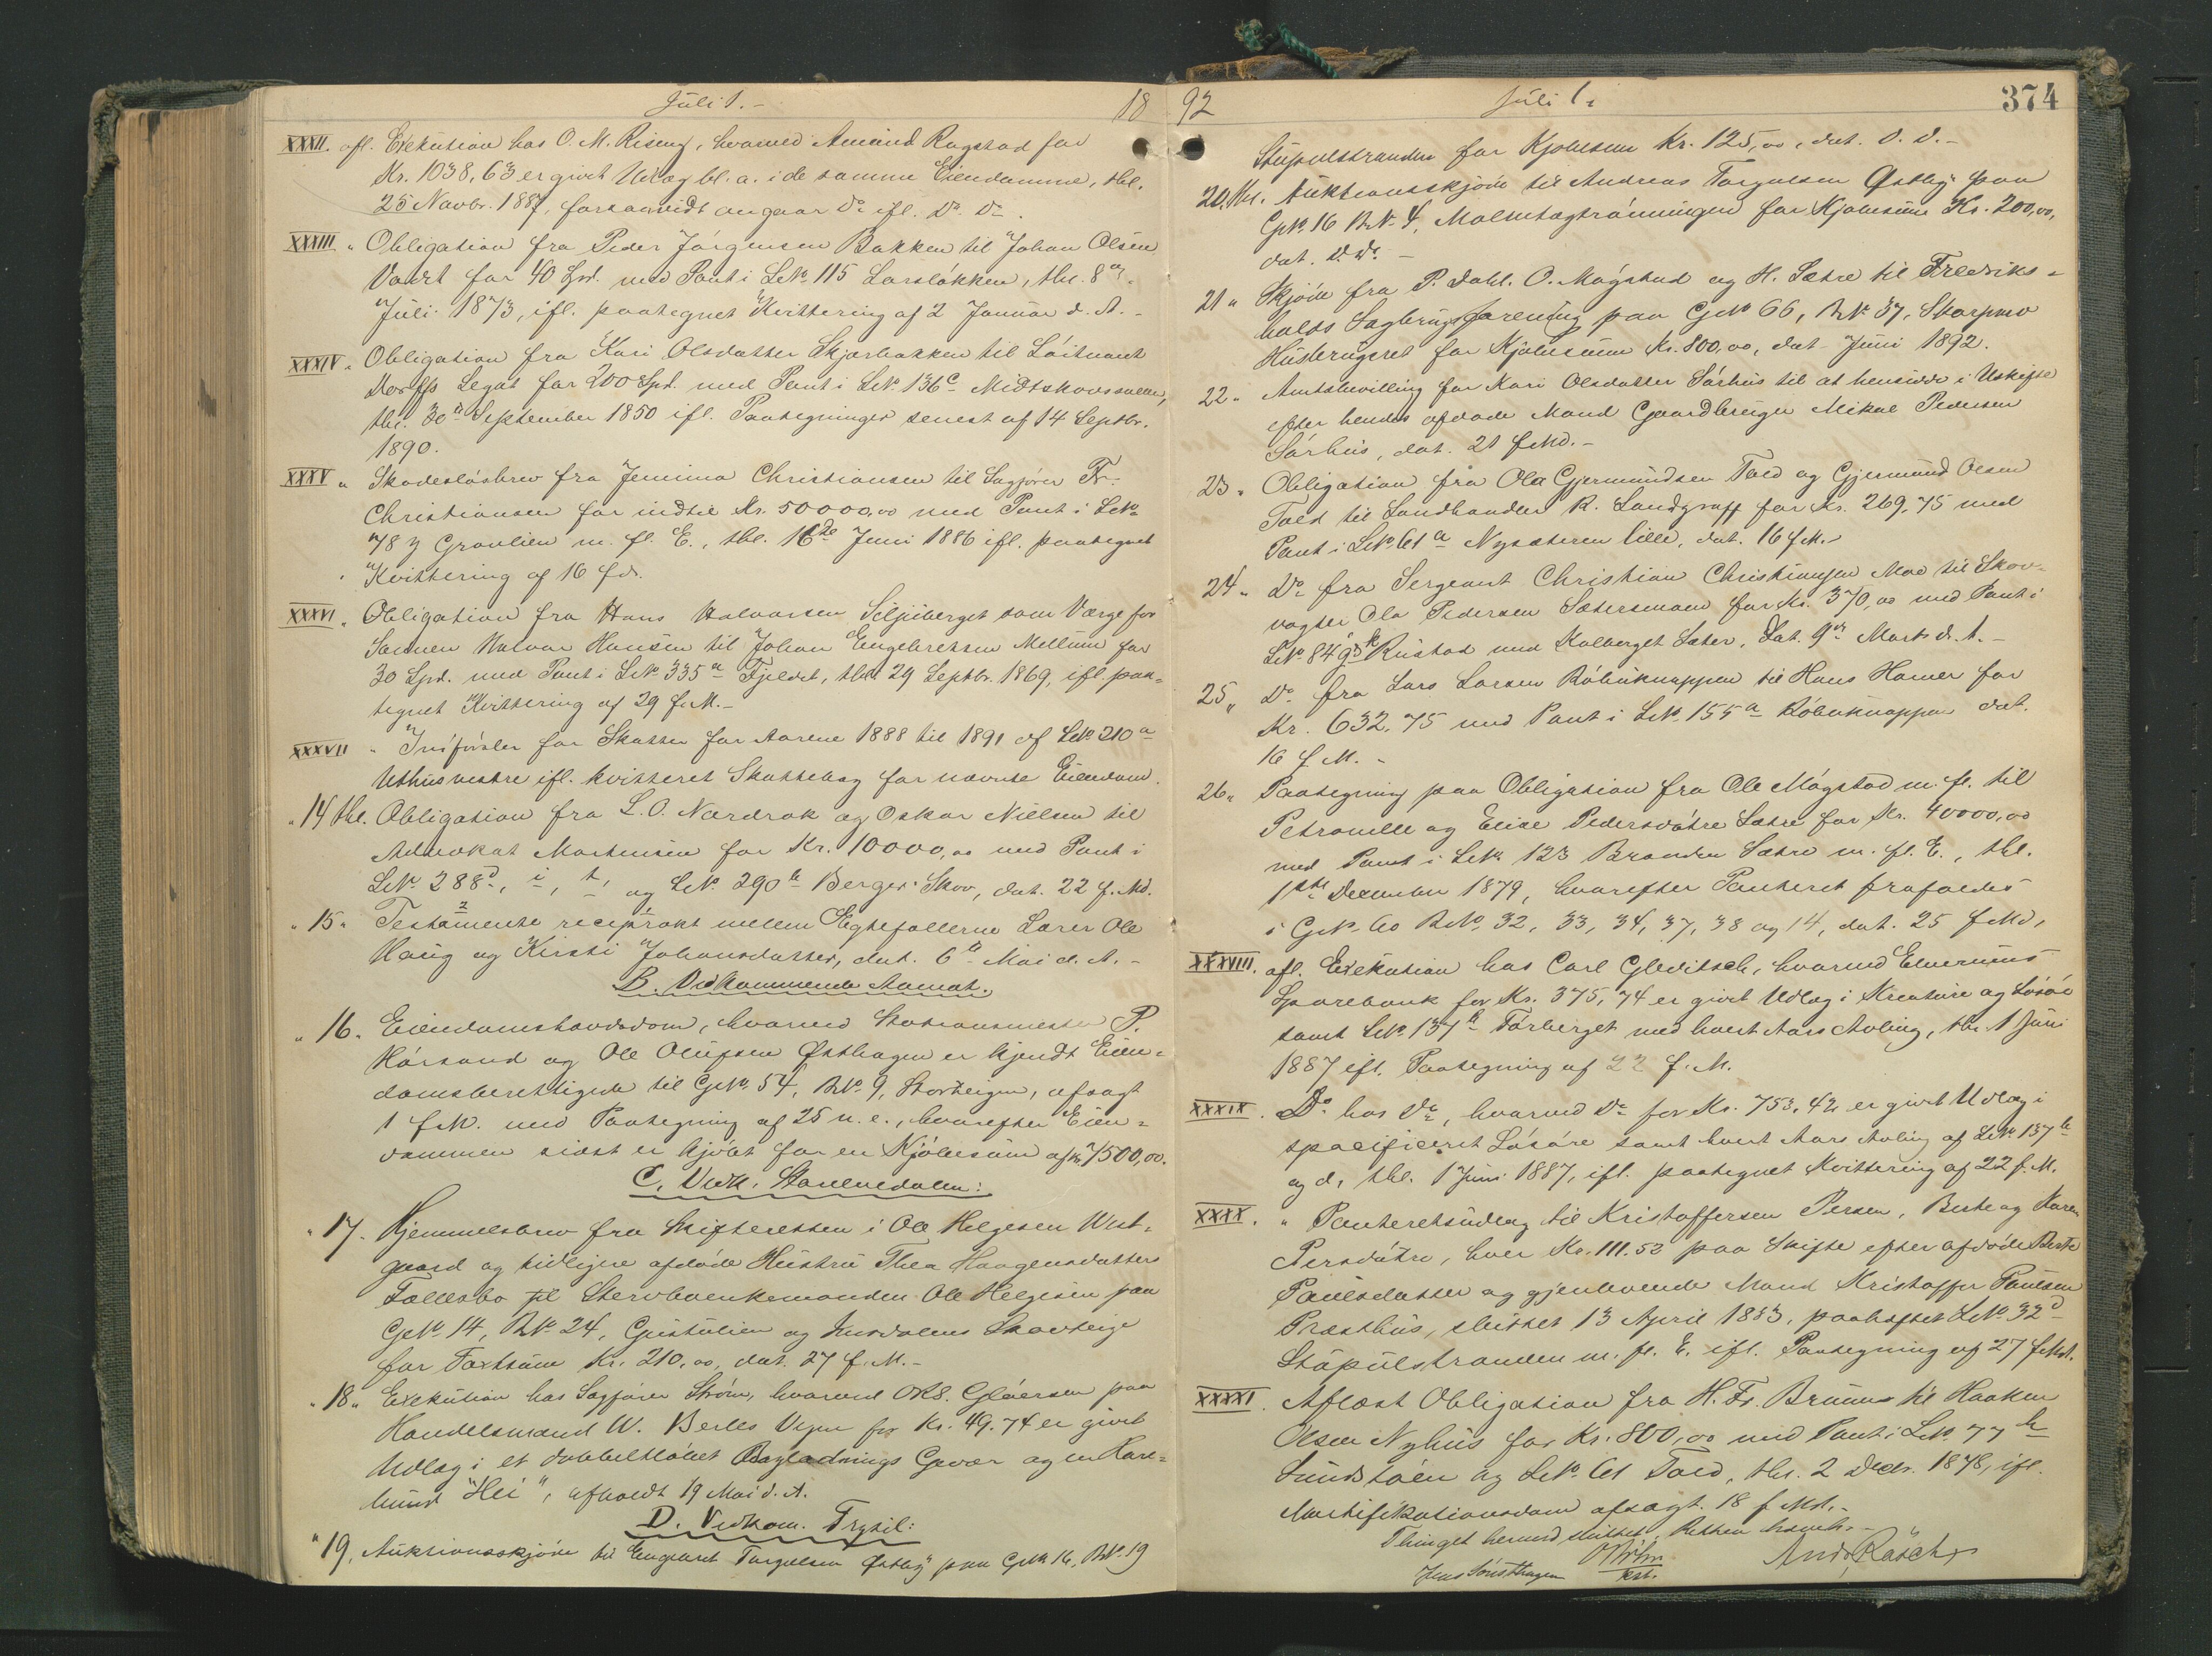 Juli 1.- 18
XXXII. afl. Exekution hos O. M. Riseng, hvorved Amund Rugstad for
Kr. 1038,63 er givet Udlæg bl. a. i de samme Eiendomme, thl.
25 Novbr. 1887, forsaavidt angaar Do ifl. Do. Do.
XXXIII " Obligation fra Peder Jørgensen Bakken til Johan Olsen
for 40 Spd. med Pant i LNo 115 Larsløkken, thl. 8de
Juli 1873, ifl. paategnet Kvittering af 2 Januar d. A. -
XXXIV " Obligation fra Kari Olsdatter Skjærbakken til Løitnant
Legat for 200 Spd. med Pant i LNo 136c
thl. 30te September 1850 ifl. Paategninger senest af 14 Septbr.
1890.
XXXV " Skadesløsbrev fra Jemima Christiansen til Sagfører Fr.
Christiansen for indtil Kr. 50000,00 med Pant i LNo
78 y Graalien m. fl. E., thl. 16de Juni 1886 ifl. paategnet
Kvittering af 16 f. M.
XXXVI " Obligation fra Hans Halvorsen Siljuberget som Værge for
Sønnen Halvor Hansen til Johan Engebretsen Mellum for
30 Spd. med Pant i LNo 335a Fjeldet, thl. 29 Septbr. 1869, ifl. paa-
tegnet Kvittering af 29 f. M. -
XXXVII " for Skatter for Aarene 1888 til 1891 af LNo 210a
Uthus vestre ifl. kvitteret Skattebog for nævnte Eiendom.
" 14 thl. Obligation fra L. O. Nærdrok og Oskar Nielsen til
Advokat Mortensen for Kr. 10000,00 med Pant i
LNo 288d, i, t, og LNo 290b Berger Skov, dat. 22 f. Md.
" 15 " Testamente reciprokt mellem Egtefollerne Lærer Ole
Haug og Kirsti Johansdatter, dat. 6te Mai d. A. -
B. Vedkommende Aamot.
" 16. Eiendomshævdsdom, hvorved Stationsmester P.
Hørsand og Ole Olufsen Østhagen er kjendt Eien-
domsberettigede til GNo 54, BNo 9, Storteigen, afsagt
1 f. M. med Paategning af 25 n. e., hvorefter Eien-
dommen sidst er kjøbt for en Kjøbesum af Kr. 7500,00.
C. Vedk. Storelvedalen:
" 17. Hjemmelsbrev fra Skifteretten i Ole Helgesen West-
gaard og tidligere afdøde Hustru Thea Haagensdatter
Fallesbo til Stervboenkemanden Ole Helgesen paa
GNo 14, BNo 24, Gustulien og Skovteige
for Taxtsum Kr. 210,00, dat. 27 f. M. -
" 18 " Exekution hos Sagfører Strøm, hvorved ORS. Gløersen paa
Handelsmand W. Berles Vegne for Kr. 49.74 er givet
Udlæg i et dobbeltløbet Bagladnings Gevær og en Hare-
hund "Hei", afholdt 19 Mai d. A.
D. Vedkom. Trysil:
" 19. Auktionsskjøde til Engebret Torgalsen Østby paa GNo 16, BNo 19
92 Juli 1. 374
Støpulstranden for Kjøbesum Kr. 125,00, dat. D. D. -
20. thl. Auktionsskjøde til Andreas Torgalsen Østby paa
GNo 16 BNo 4, for Kjøbesum Kr. 200,00,
dat. D. Do. -
21 " Skjøde fra P. Dahl, O. Møgstad og H. Sætre til Fredriks-
halds Sagbrugsforening paa GNo 66, BNo 37, Skarpmo
Husbrugeret for Kjøbesum Kr. 800,00, dat. Juni 1892.
22 " Amtsbevilling for Kari Olsdatter Sørhus til at hensidde i Uskifte
efter hendes afdøde Mand Gaardbruger Mikal Pedersen
Sørhus, dat. 21 f. Md. -
23 " Obligation fra Ola Gjermundsen Fald og Gjermund Olsen
Fald til Landhandler R. Landgraff for Kr. 269,75 med
Pant i LNo 61a Nysæteren lille, dat. 16 f. M. -
24 " Do fra Sergeant Christian Christiansen Moe til Skov-
vogter Ola Pedersen Sætersmoen for Kr. 370,00 med Pant i
LNo 84 Rustad med Kolberget Sæter, dat. 9de Marts d. A. -
25 " Do fra Lars Larsen Røbuknappen til Hans Hamer for
Kr. 632,75 med Pant i LNo 155a Røbuknappen dat.
16 f. M. -
26 " Paategning paa Obligation fra Ole Møgstad m. fl. til
Petronelle og Elise Pedersdøtre Sætre for Kr. 40000,00
med Pant i LNo 123 Branden Sætre m. fl. E., thl.
1ste December 1879, hvorefter Panteret frafaldes
i GNo 60 BNo 32, 33, 34, 37, 38 og 14, dat. 25 f. Md.
XXXVIII. afl. Exekution hos Carl Gleditsch, hvorved Elverums
Sparebank for Kr. 375,74 er givet Udlæg i Kreature og Løsøre
samt LNo 137b Tørberget med hvert Aars Avling, thl. 1 Juni
1887 ifl. Paategning af 22 f. M.
XXXIX. Do hos Do, hvorved Do for Kr. 753,42 er givet Udlæg i
specificeret Løsøre samt hvert Aars Avling af LNo 137b
og d, thl. 1 Juni 1887, ifl. paategnet Kvittering af 22 f. M.
XXXX. " Panteretsudlæg til Kristoffersen Persen, Berte og Karen
Persdøtre, hver Kr. 111.52 paa Skifte efter afdøde Berte
Paulsdatter og gjenlevende Mand Kristoffer Paulsen
Præsthus, sluttet 13 April 1883, paahæftet LNo 32d
Støpulstranden m. fl. E. ifl. Paategning af 27 f. Md.
XXXXI. Aflæst Obligation fra H. Fr. Bruuns til Haaken
Olsen Nyhus for Kr. 800,00 med Pant i LNo 77b
Sundstøen og LNo 61 Fald, thl. 2 Decbr. 1878, ifl.
Mortifikationsdom afsagt. 18 f. Md. -
Thinget hermed sluttet. Retten hævet. -
Jens Sønsthagen
Andr Rasch